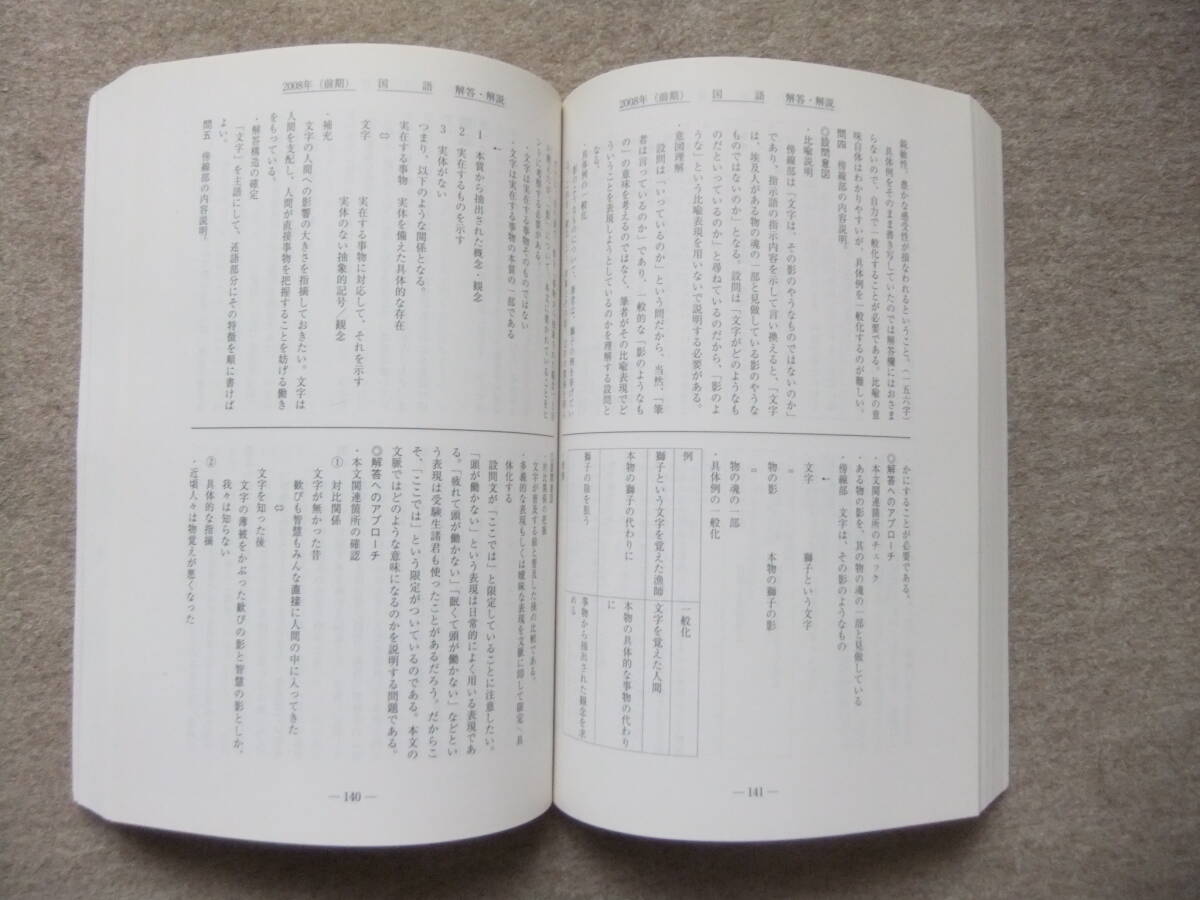 2008年（前期）　国　語　解答・解説
鋭敏性、豊かな感受性が損なわれるということ。（一五六字）
具体例をそのまま書き写していたのでは解答欄にはおさま
らないので、自力で一般化することが必要である。比喩の意
味自体はわかりやすいが、具体例を一般化するのが難しい。
問四　傍線部の内容説明。
◎設問意図
・比喩説明
傍線部は「文字は、その影のやうなものではないのか」
であり、指示語の指示内容を示して言い換えると、「文字
は、埃及人がある物の魂の一部と見做している影のやうな
ものではないのか」となる。設問は「文字がどのようなも
のだといっているのか」と尋ねているのだから、「影のよ
うな」という比喩表現を用いないで説明する必要がある。
・意図理解
設問は「いっているのか」という問だから、当然、「筆
者は言っているのか」であり、一般的な「影のようなも
の」の意味を考えるのではなく、筆者がその比喩表現でど
ういうことを表現しようとしているのかを理解する設問と
なる。
・具体例の一般化
かにすることが必要である。
◎解答へのアプローチ
・本文関連箇所のチェック
ある物の影を、其の物の魂の一部と見做している
・傍線部　文字は、その影のようなもの
←
文字　　　獅子という文字
＝
物の影　　本物の獅子の影
＝
物の魂の一部
・具体例の一般化
例　一般化
獅子という文字を覚えた漁師　文字を覚えた人間
本物の獅子の代わりに　本物の具体的な事物の代わり
に
獅子の陰を狙う　事物から抽出された観念を求
める
― 141 ―
2008年（前期）　国　語　解答・解説
うに考察する必要がある。
・文字は実在する事物そのものではない
・文字は実在する事物の本質の一部である
←
1　本質から抽出された概念・観念
2　実在するものを示す
3　実体がない
つまり、以下のような関係となる。
実在する事物　実体を備えた具体的な存在
⇔
文字　　　実在する事物に対応して、それを示す
実体のない抽象的記号／観念
・補充
文字の人間への影響の大きさを指摘しておきたい。文字は
人間を支配し、人間が直接事物を把握することを妨げる働き
をもっている。
・解答構造の確定
「文字」を主語にして、述語部分にその特徴を順に書けば
よい。
問五　傍線部の内容説明。
・対比関係の把握
文字が普及する前と普及した後の比較である。
・多義的な表現もしくは曖昧な表現を文脈に即して限定へ具
体化する
設問文が「ここでは」と限定していることに注意したい。
「頭が働かない」という表現は日常的によく用いる表現であ
る。「疲れて頭が働かない」「眠くて頭が働かない」などとい
う表現は受験生諸君も使ったことがあるだろう。だからこ
そ、「ここでは」という限定がついているのである。本文の
文脈ではどのような意味になるのかを説明する問題である。
◎解答へのアプローチ
・本文関連箇所の確認
①　対比関係
文字が無かった昔
歓びも智慧もみんな直接に人間の中に入ってきた
⇔
文字を知った後
文字の薄被をかぶった歓びの影と智慧の影としか、
我々は知らない
②　具体的な指摘
・近頃人々は物覚えが悪くなった
― 140 ―